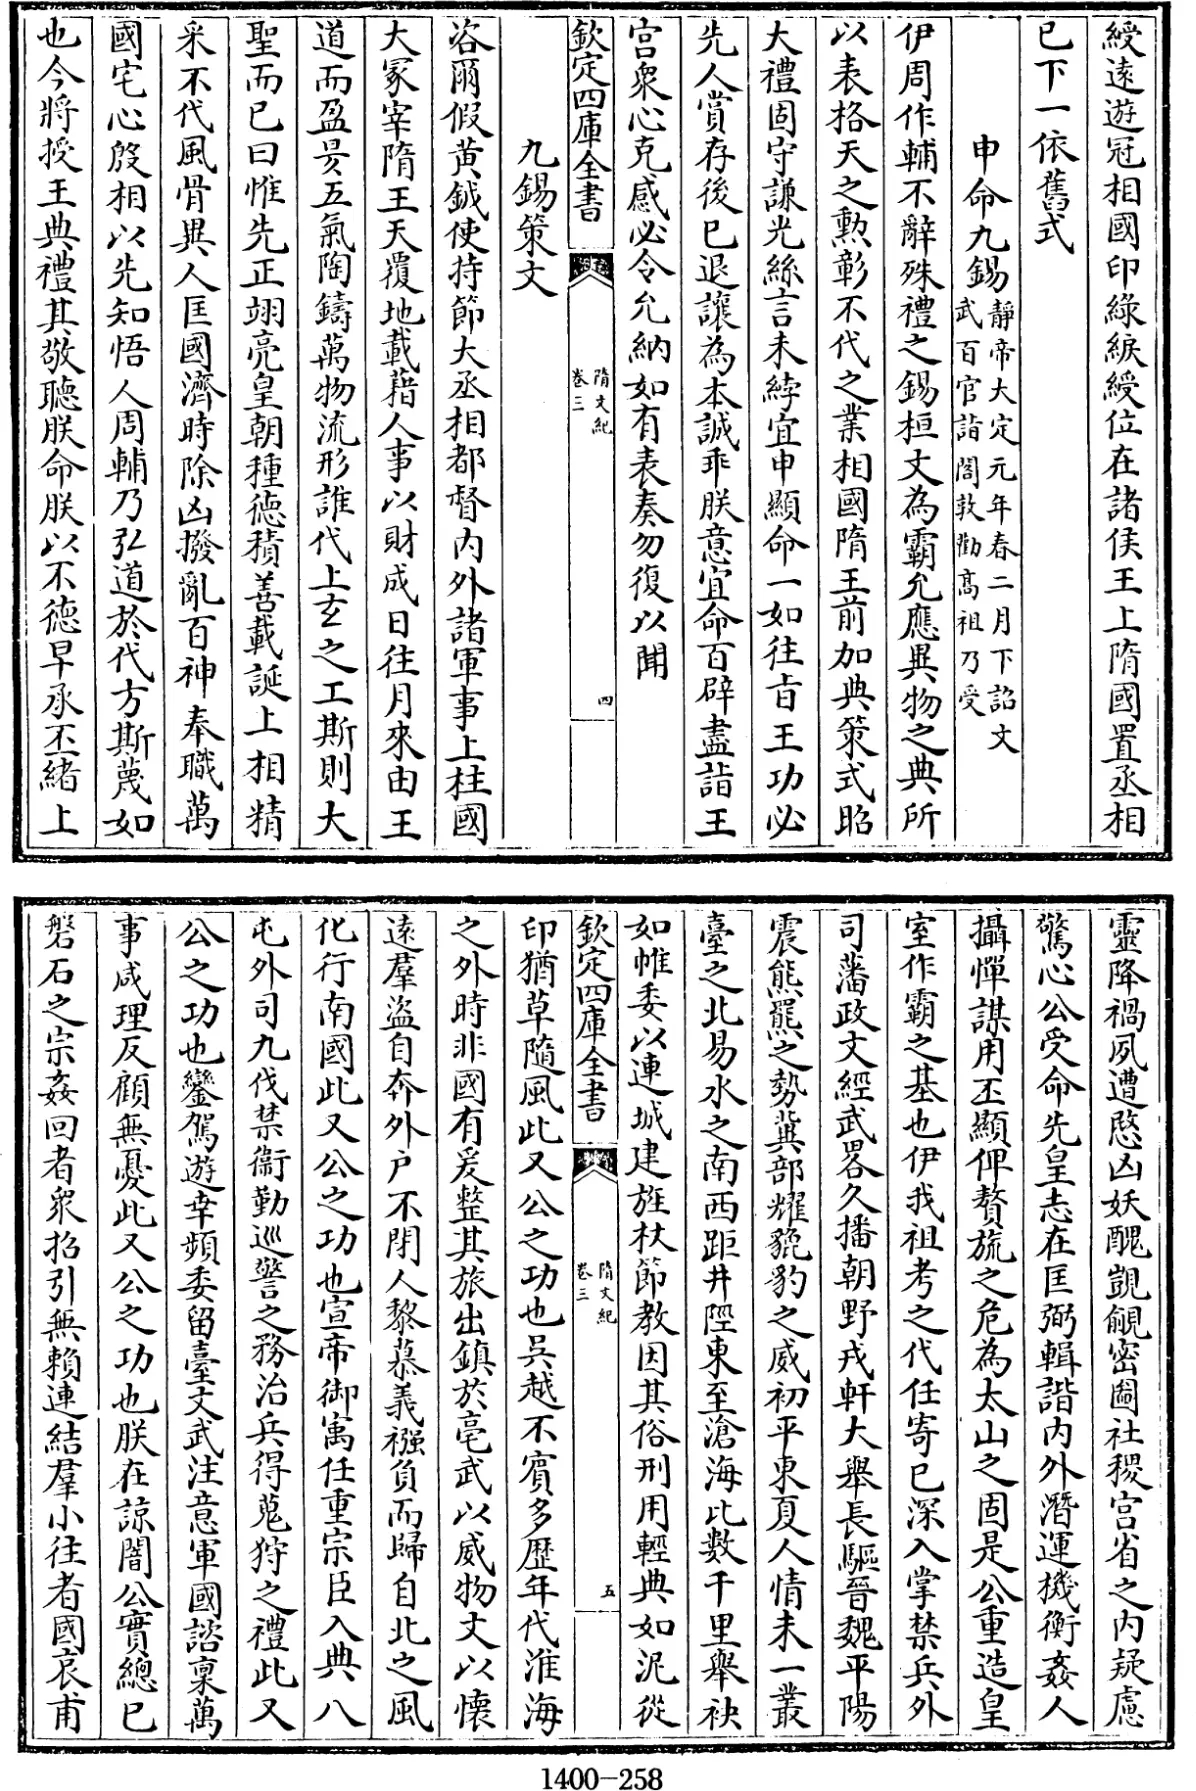 綬逺遊冠相國印綠綟綬位在諸侯王上隋國置丞相
已下一依舊式
申命九錫靜帝大定元年春二月下詔文
武百官詣閤敦勸髙祖乃受
伊周作輔不辭殊禮之錫桓文為霸允應異物之典所
以表格天之勲彰不代之業相國隋王前加典策式昭
大禮固守謙光絲言未綍宜申顯命一如往㫖王功必
先人賞存後已退讓為本誠乖朕意宜命百辟盡詣王
宫衆心克感必令允納如有表奏勿復以聞
欽定四庫全書
隋文紀
卷三
四
九錫策文
咨爾假黄鉞使持節大丞相都督内外諸軍事上柱國
大冢宰隋王天覆地載藉人事以財成日往月來由王
道而盈昃五氣陶鑄萬物流形誰代上𤣥之工斯則大
聖而已曰惟先正翊亮皇朝種德積善載誕上相精
采不代風骨異人匡國濟時除凶撥亂百神奉職萬
國宅心殷相以先知悟人周輔乃弘道於代方斯蔑如
也今將授王典禮其敬聽朕命朕以不德早承丕緒上
靈降禍夙遭愍凶妖醜覬覦密圖社稷宫省之内疑慮
驚心公受命先皇志在匡弼輯諧内外潛運機衡姦人
攝憚謀用丕顯俾贅旒之危為太山之固是公重造皇
室作霸之基也伊我祖考之代任寄已深入掌禁兵外
司藩政文經武畧久播朝野戎軒大舉長驅晉魏平陽
震熊羆之勢冀部耀貔豹之威初平東夏人情未一叢
臺之北易水之南西距井陘東至滄海比數千里舉袂
如帷委以連城建旌杖節教因其俗刑用輕典如泥從
欽定四庫全書
隋文紀
卷三
五
印猶草隨風此又公之功也吳越不賓多歴年代淮海
之外時非國有爰整其旅出鎮於亳武以威物文以懷
逺羣盗自奔外户不閉人黎慕義襁負而歸自北之風
化行南國此又公之功也宣帝御寓任重宗臣入典八
屯外司九伐禁衛勤巡警之務治兵得蒐狩之禮此又
公之功也鑾駕遊幸頻委留臺文武注意軍國諮稟萬
事咸理反顧無憂此又公之功也朕在諒闇公實總已
磐石之宗姦回者衆招引無賴連結羣小往者國哀甫
1400-258